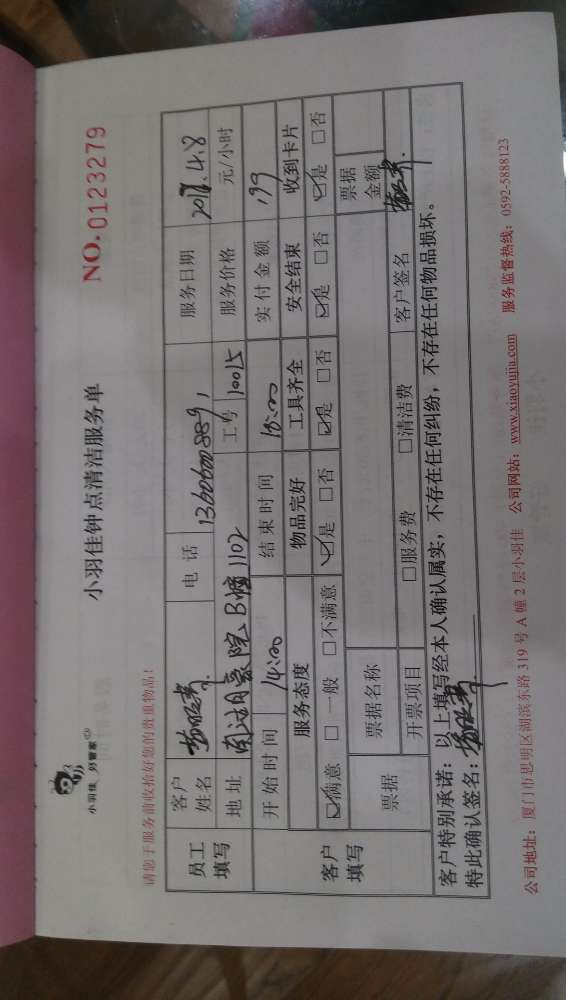 小羽佳 好管家
小羽佳钟点清洁服务单
NO.0123279
请您于服务前收拾好您的贵重物品!
员工填写
客户姓名
电话
服务日期 4.8
地址 B幢1102
工号 10015
服务价格 元/小时
客户填写
开始时间 14:00
结束时间 18:00
实付金额 199
服务态度 物品完好 工具齐全 安全结束 收到卡片
☑满意 □一般 □不满意 ☑是 □否 ☑是 □否 ☑是 □否 ☑是 □否
票据
票据名称
票据金额
开票项目 □服务费 □清洁费
客户签名
客户特别承诺:以上填写经本人确认属实,不存在任何纠纷,不存在任何物品损坏。
特此确认签名:
公司地址:厦门市思明区湖滨东路319号A幢2层小羽佳 公司网站:www.xiaoyujia.com 服务监督热线:0592-5888123